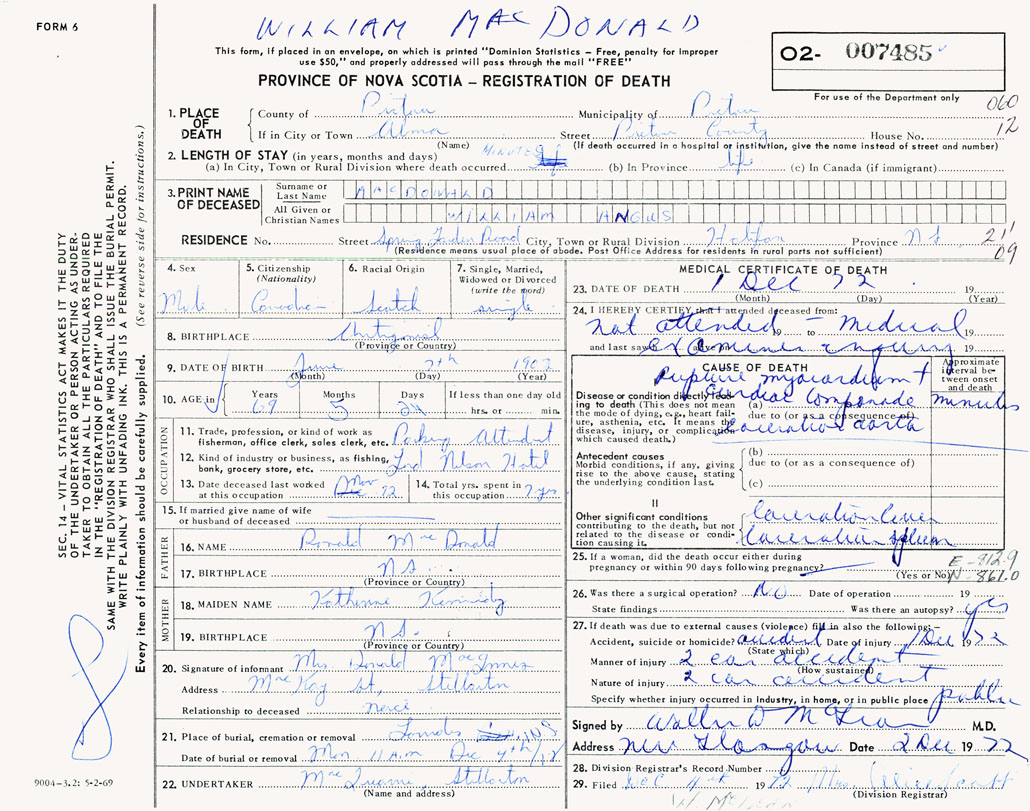 FORM 6
WILLIAM MAC DONALD
This form, if placed in an envelope, on which is printed "Dominion Statistics – Free, penalty for improper
use $50," and properly addressed will pass through the mail "FREE"
O2- 007485
PROVINCE OF NOVA SCOTIA – REGISTRATION OF DEATH
For use of the Department only
060
12
1. PLACE OF DEATH
County of Pictou Municipality of Pictou
If in City or Town Alma Street Pictou County House No.
(Name) (If death occurred in a hospital or institution, give the name instead of street and number)
2. LENGTH OF STAY (in years, months and days) MINUTES
(a) In City, Town or Rural Division where death occurred (b) In Province life (c) In Canada (if immigrant)
3. PRINT NAME OF DECEASED
Surname or Last Name MACDONALD
All Given or Christian Names WILLIAM ANGUS
RESIDENCE No. Street Spring Garden Road City, Town or Rural Division Halifax Province NS
(Residence means usual place of abode. Post Office Address for residents in rural parts not sufficient)
21
09
4. Sex
Male
5. Citizenship
(Nationality)
Canadian
6. Racial Origin
Scotch
7. Single, Married,
Widowed or Divorced
(write the word)
single
8. BIRTHPLACE Antigonish
(Province or Country)
9. DATE OF BIRTH June 7th 1903
(Month) (Day) (Year)
10. AGE in
Years Months Days If less than one day old
69 5 24 hrs. or min.
OCCUPATION
11. Trade, profession, or kind of work as
fisherman, office clerk, sales clerk, etc. Parking Attendant
12. Kind of industry or business, as fishing,
bank, grocery store, etc. Lord Nelson Hotel
13. Date deceased last worked
at this occupation Nov 72
14. Total yrs. spent in
this occupation 7 yrs
15. If married give name of wife
or husband of deceased
FATHER
16. NAME Ronald MacDonald
17. BIRTHPLACE N.S.
(Province or Country)
MOTHER
18. MAIDEN NAME Katherine Kennedy
19. BIRTHPLACE N.S.
(Province or Country)
20. Signature of informant Mrs. Donald MacInnes
Address MacKay St, Stellarton
Relationship to deceased niece
21. Place of burial, cremation or removal Lourdes N.S
Date of burial or removal Mon 11 A.m Dec 4th/72
22. UNDERTAKER Stellarton
(Name and address)
MEDICAL CERTIFICATE OF DEATH
23. DATE OF DEATH 1 Dec 72 19
(Month) (Day) (Year)
24. I HEREBY CERTIFY that I attended deceased from:
not attended 19 to medical 19
and last saw alive on examiner enquiry 19
CAUSE OF DEATH
Approximate
interval between onset
and death
Rupture myocardium +
Disease or condition directly leading to death (This does not mean
the mode of dying, e.g., heart failure, asthenia, etc. It means the
disease, injury, or complication
which caused death.)
(a) Cardiac Componade minutes
due to (or as a consequence of)
laceration aorta
Antecedent causes
Morbid conditions, if any, giving
rise to the above cause, stating
the underlying condition last.
(b)
due to (or as a consequence of)
(c)
II
Other significant conditions
contributing to the death, but not
related to the disease or condition causing it.
laceration liver
laceration spleen
25. If a woman, did the death occur either during
pregnancy or within 90 days following pregnancy?
(Yes or No)
E - 812.9
N - 861.0
26. Was there a surgical operation? NO Date of operation 19
State findings Was there an autopsy? yes
27. If death was due to external causes (violence) fill in also the following:–
Accident, suicide or homicide? accident Date of injury 1 Dec 1972
(State which)
Manner of injury 2 car accident
(How sustained)
Nature of injury 2 car accident
Specify whether injury occurred in industry, in home, or in public place public
Signed by Walter D McLean M.D.
Address New Glasgow Date 2 Dec 1972
28. Division Registrar's Record Number
29. Filed Dec 4th 1972 Mrs
(Division Registrar)
W. McLean
SEC. 14 – VITAL STATISTICS ACT MAKES IT THE DUTY
OF THE UNDERTAKER OR PERSON ACTING AS UNDERTAKER TO OBTAIN ALL THE PARTICULARS REQUIRED
IN THE "REGISTRATION OF DEATH" AND TO FILE THE
SAME WITH THE DIVISION REGISTRAR WHO SHALL ISSUE THE BURIAL PERMIT.
WRITE PLAINLY WITH UNFADING INK. THIS IS A PERMANENT RECORD.
Every item of information should be carefully supplied. (See reverse side for instructions.)
9004-3.2: 5-2-69